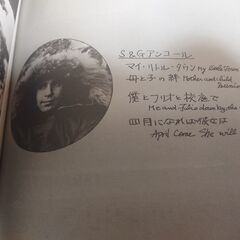 S&Gアンコール
マイ・リトル・タウン My Little Town
母と子の絆 Mother and child
僕とフリオと校庭で
Me and Julio down by the
四月になれば彼女は
April Come She Will